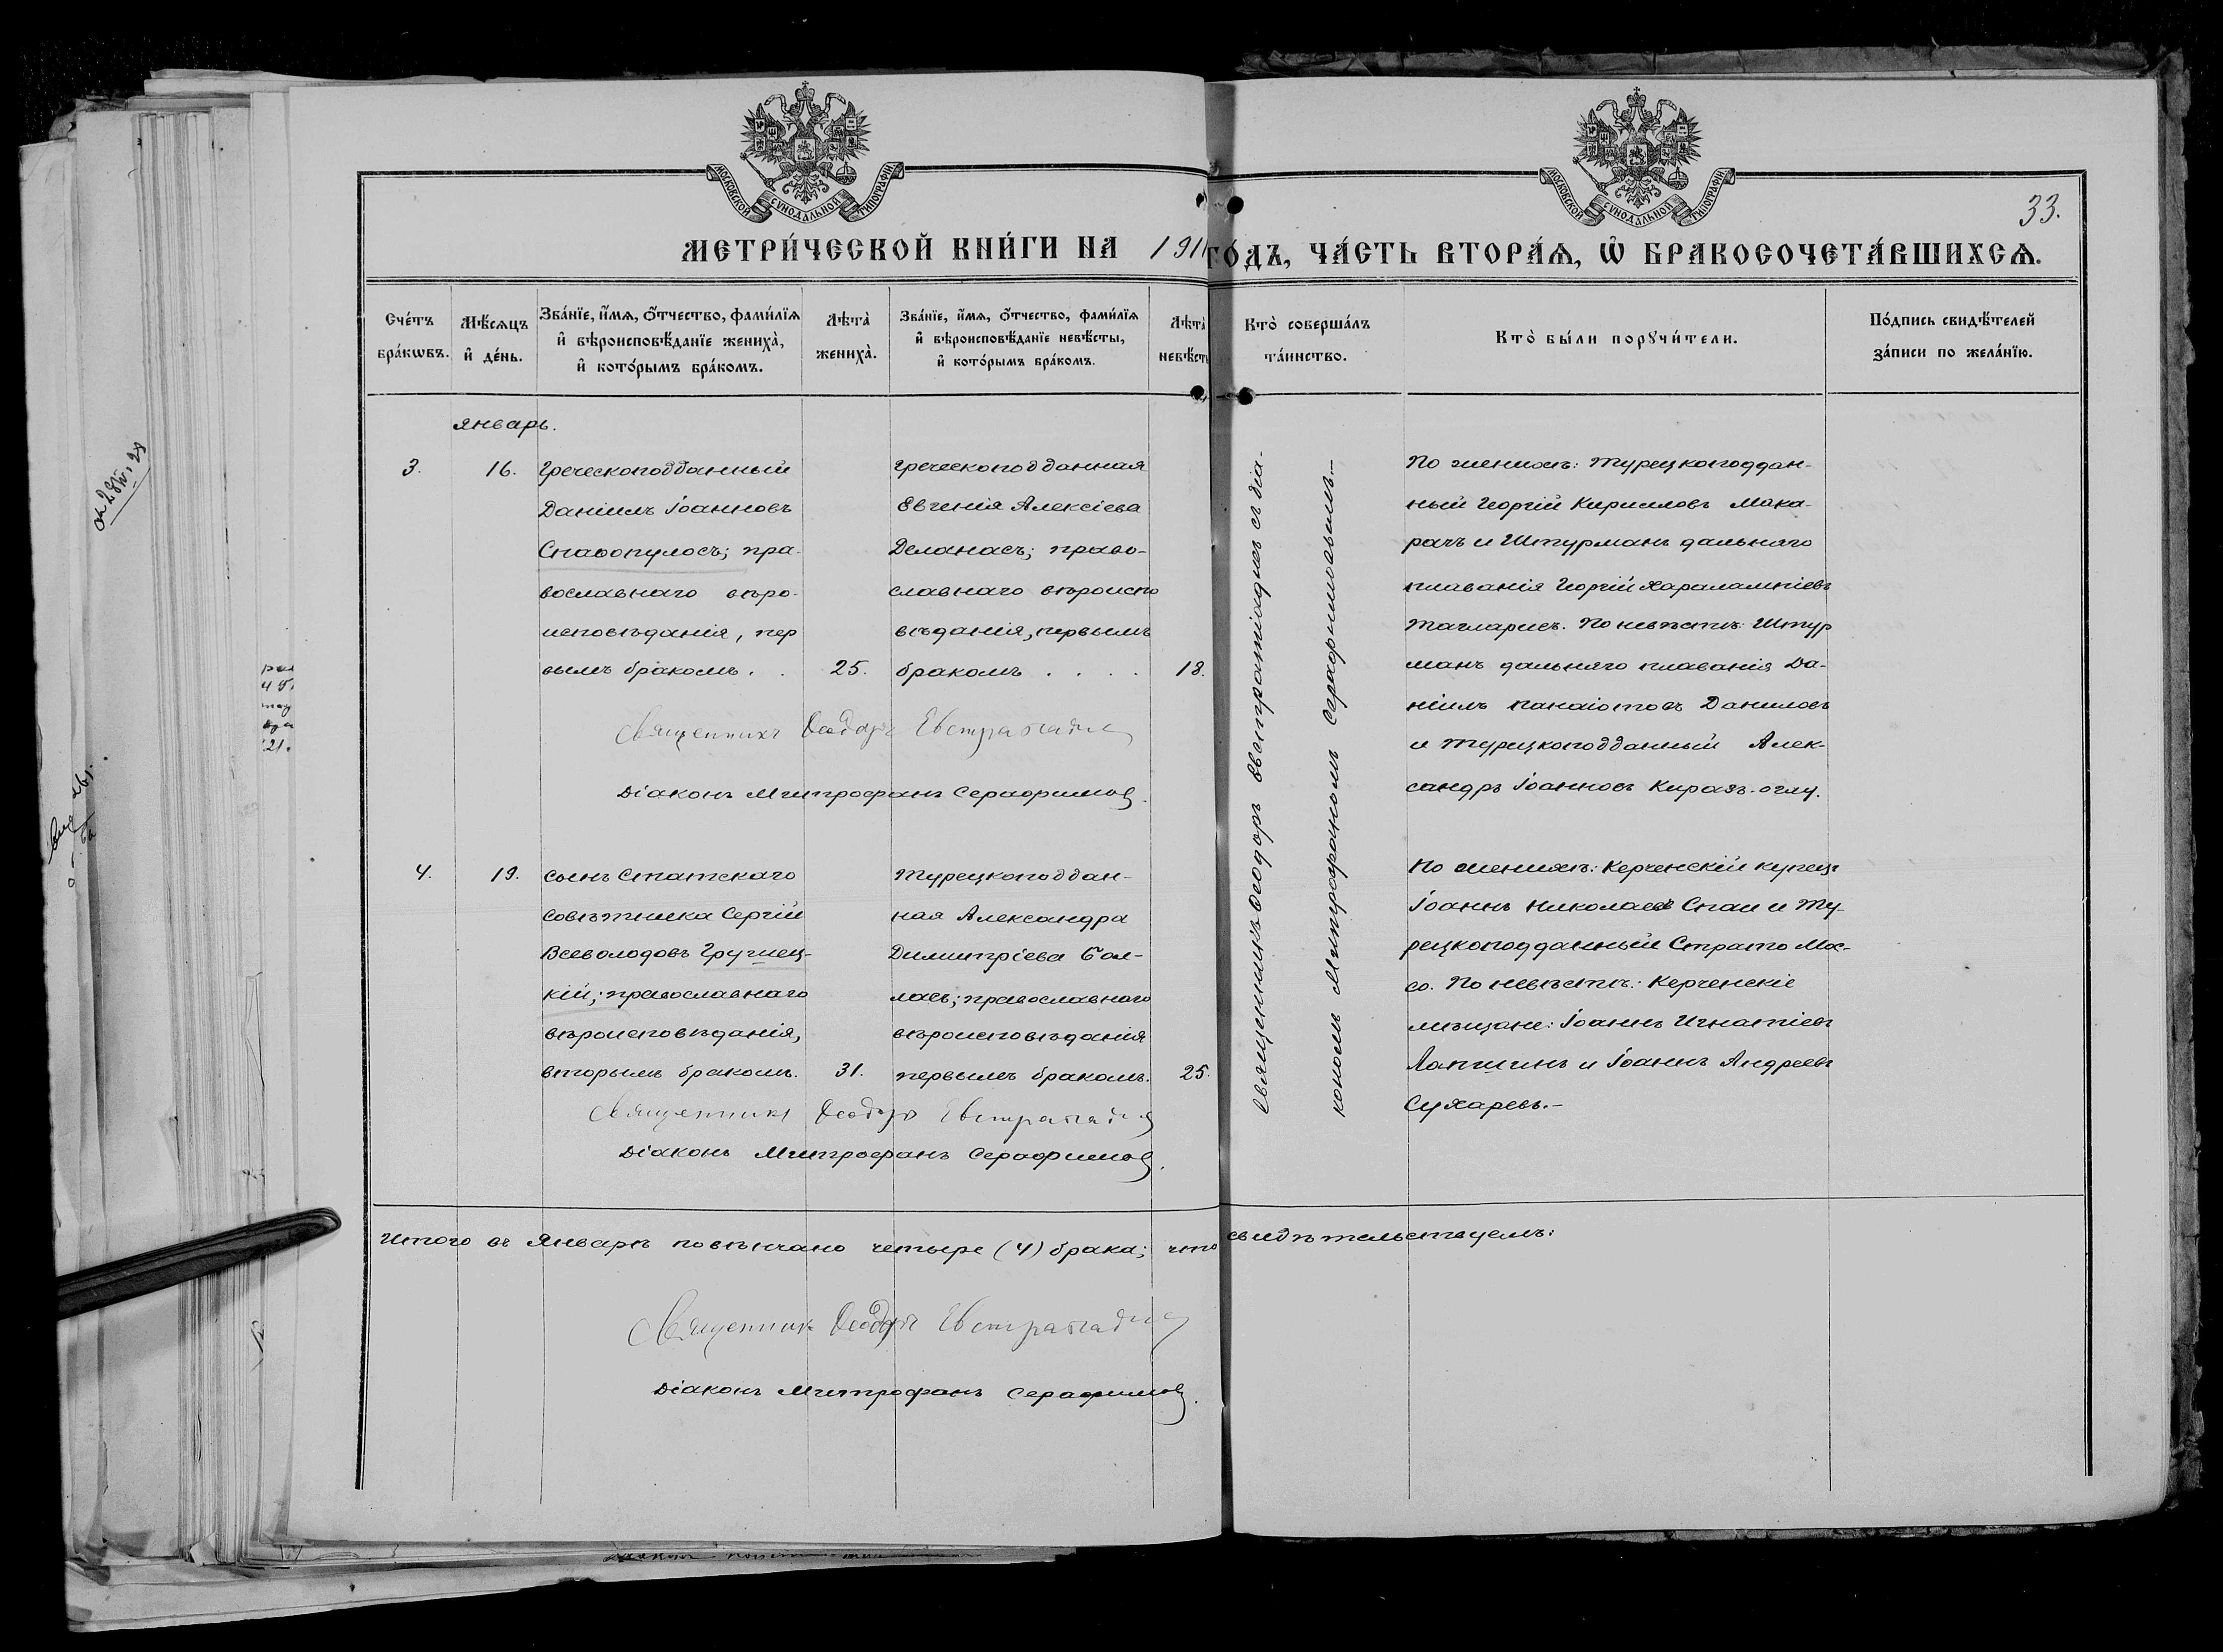 МОСКОВСКОЙ СѴНОДАЛЬНОЙ ТИПОГРАФІИ
МОСКОВСКОЙ СѴНОДАЛЬНОЙ ТИПОГРАФІИ
33.
МЕТРИ́ЧЕСКОЙ КНИ́ГИ НА 1911 ГО́ДЪ, ЧА́СТЬ ВТОРА́Ѧ, Ѽ БРАКОСОЧЕТА́ВШИХСѦ.
Сче́тъ
бра́кѡвъ.
Мѣ́сѧцъ
и҆ де́нь.
Зва́нїе, и҆́мѧ, ѻ҆́тчество, фами́лїѧ
и҆ вѣроисповѣ́данїе жениха̀,
и҆ кото́рымъ бра́комъ.
Лѣта̀
жениха̀.
Зва́нїе, и҆́мѧ, ѻ҆́тчество, фами́лїѧ
и҆ вѣроисповѣ́данїе невѣ́сты,
и҆ кото́рымъ бра́комъ.
Лѣта̀
невѣ́сты
Кто̀ соверша́лъ
та́инство.
Кто̀ бы́ли порꙋчи́тели.
По́дпись свидѣ́телей
за́писи по жела́нїю.
Январь.
3.
16.
Греческоподданный
Даніилъ Іоанновъ
Спаѳопулосъ; пра-
вославнаго вѣро-
исповѣданія, пер
вымъ бракомъ. .
25.
Греческоподданная
Евгенія Алексіева
Деланасъ; право-
славнаго вѣроиспо
вѣданія, первымъ
бракомъ . . . .
18.
Священникъ Ѳеодоръ Евстратіади
Діаконъ Митрофанъ Серафимовъ.
Священникъ Ѳеодоръ Евстратіадисъ съ діа-
кономъ Митрофаномъ Серафимовымъ.—
По женихѣ: Турецкоподдан-
ный Георгій Кирилловъ Мака-
рачъ и Штурманъ дальняго
плаванія Георгій Харалампіевъ
Тагларисъ. По невѣстѣ: Штур
манъ дальняго плаванія Да-
ніилъ Панаіотовъ Даниловъ
и турецкоподданный Алек-
сандръ Іоанновъ Киразъ-оглу.
4.
19.
Сынъ Статскаго
Совѣтника Сергій
Всеволодовъ Гручец-
кій; православнаго
вѣроисповѣданія,
вторымъ бракомъ.
31.
Турецкоподдан-
ная Александра
Димитріева Бал-
ласъ; православнаго
вѣроисповѣданія
первымъ бракомъ.
25.
Священникъ Ѳеодоръ Евстратіади
Діаконъ Митрофанъ Серафимовъ.
По женихѣ: Керченскій купецъ
Іоаннъ Николаевъ Спаи и Ту-
рецкоподданный Страто Мас-
со. По невѣстѣ: Керченскіе
мѣщане: Іоаннъ Игнатіевъ
Лапшинъ и Іоаннъ Андреевъ
Сухаревъ.—
Итого въ Январѣ повѣнчано четыре (4) брака; что свидѣтельствуемъ:
Священникъ Ѳеодоръ Евстратіади
Діаконъ Митрофанъ Серафимовъ.